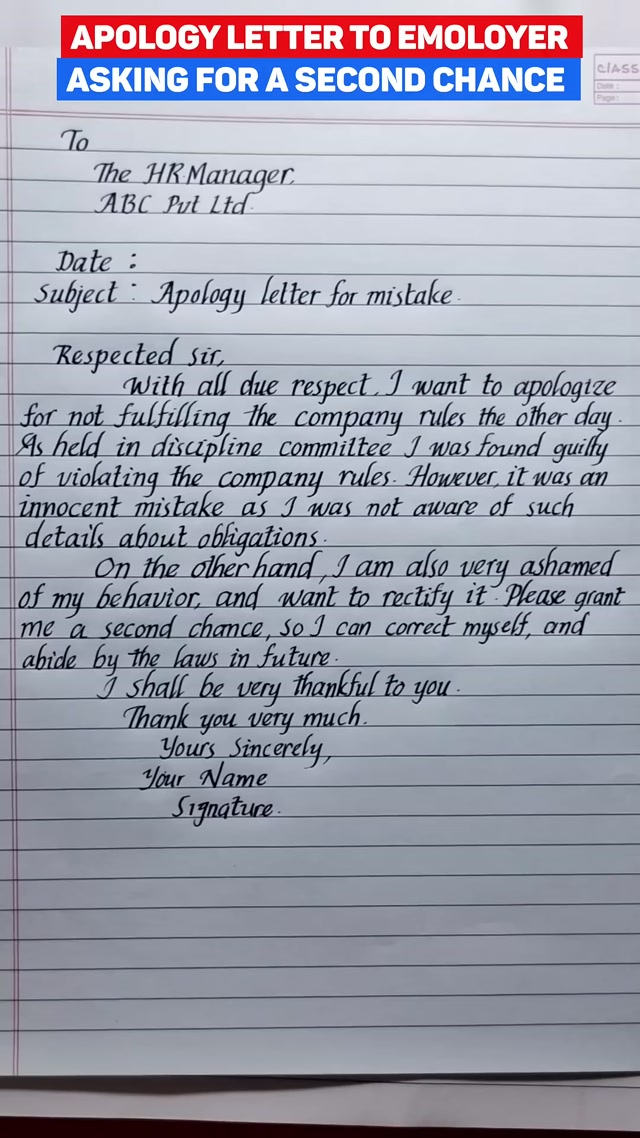 APOLOGY LETTER TO EMOLOYER
ASKING FOR A SECOND CHANCE
CLASS
Date :
Page :
To
The HR Manager,
ABC Pvt Ltd.
Date :
Subject : Apology letter for mistake.
Respected sir,
With all due respect, I want to apologize
for not fulfilling the company rules the other day.
As held in discipline committee I was found guilty
of violating the company rules. However, it was an
innocent mistake as I was not aware of such
details about obligations.
On the other hand, I am also very ashamed
of my behavior, and want to rectify it. Please grant
me a second chance, so I can correct myself, and
abide by the laws in future.
I shall be very thankful to you.
Thank you very much.
Yours Sincerely,
Your Name
Signature.